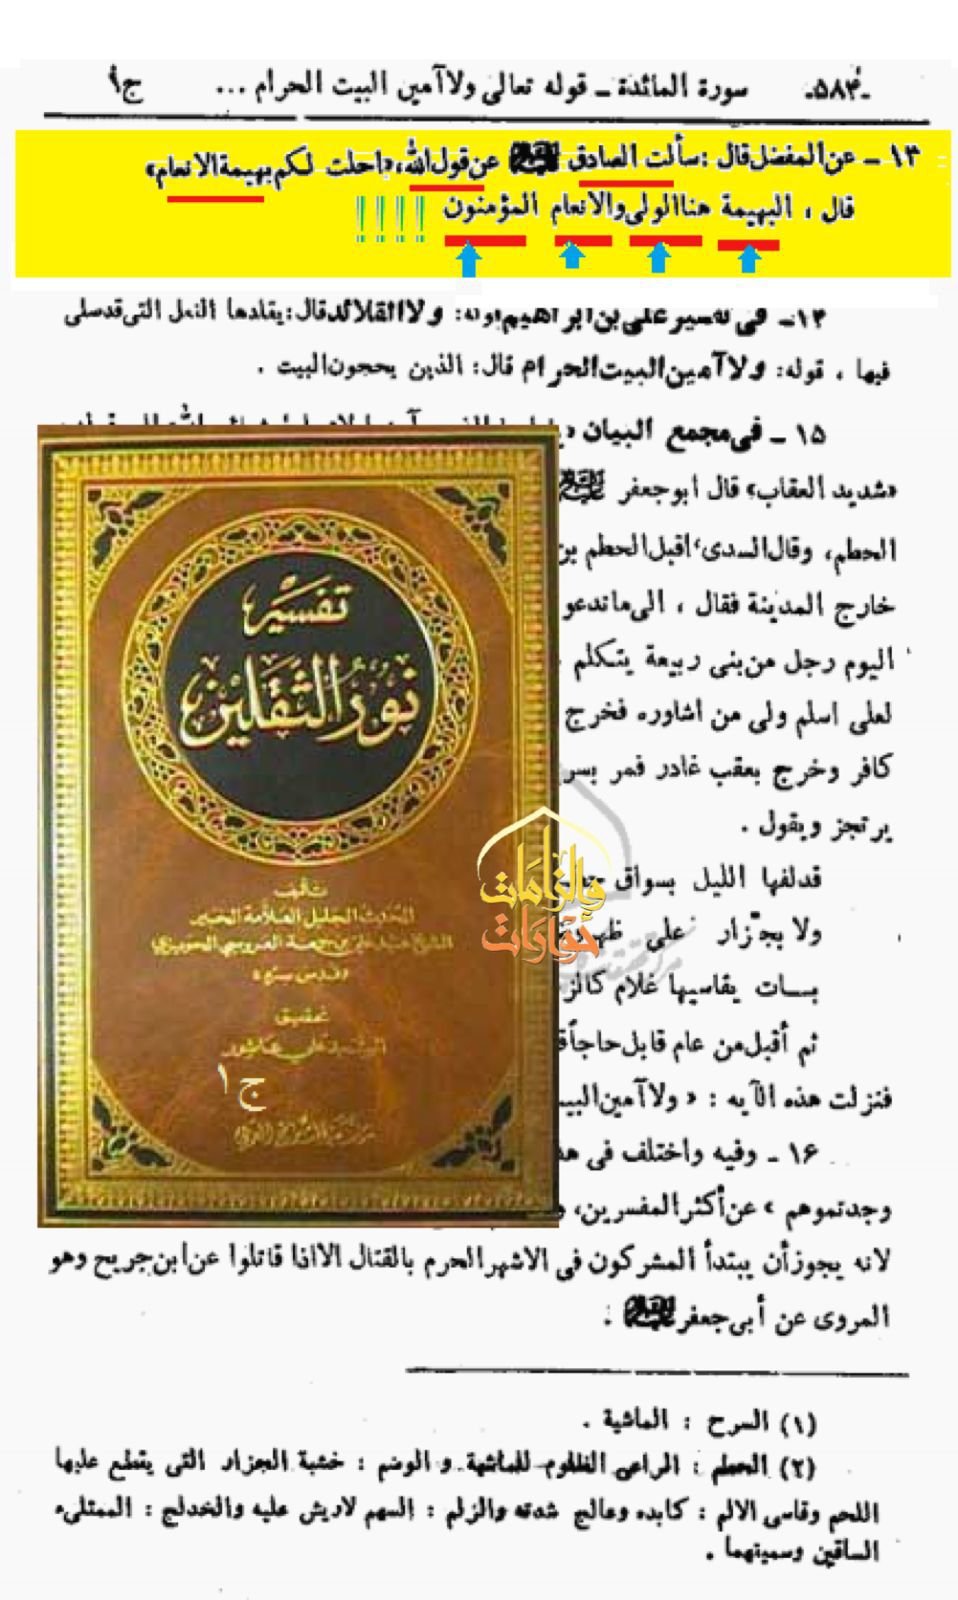 -٥٨٣- سورة المائدة ــ قوله تعالى ولا آمين البيت الحرام ... ج١
١٣ ــ عن المفضل قال : سألت الصادق عن قول الله ، «احلت لكم بهيمة الانعام»
قال ، البهيمة هنا الولى والانعام المؤمنون !!!!
١٤- فى تفسير على بن ابراهيم قوله : ولا القلائد قال : يقلدها النعل التى قد صلى
فيها ، قوله : ولا آمين البيت الحرام قال : الذين يحجون البيت .
١٥ ــ فى مجمع البيان
«شديد العقاب» قال ابو جعفر
الحطم، وقال السدى اقبل الحطم بن
خارج المدينة فقال ، الى ما ندعو
اليوم رجل من بنى ربيعة يتكلم
لعلى اسلم ولى من اشاوره فخرج
كافر وخرج بعقب غادر فمر بسر
يرتجز ويقول .
قد لفها الليل بسواق
ولا بجزار على ظهر
بــات يقاسيها غلام كالز
ثم أقبل من عام قابل حاجاً
فنزلت هذه الآيه : « ولا آمين البيت
١٦ ــ وفيه واختلف فى هذ
وجدتموهم » عن أكثر المفسرين، و
لانه يجوز أن يبتدأ المشركون فى الاشهر الحرم بالقتال الا اذا قاتلوا عن ابن جريح وهو
المروى عن أبى جعفر .
(١) السرح : الماشية .
(٢) الحطم : الراعى الظلوم للماشية و الوضم : خشبة الجزار التى يقطع عليها
اللحم وقاسى الالم : كابده وعالج شدته والزلم : السهم لا ريش عليه والخدلج : الممتلىء
الساقين وسمينهما .
تفسير
نور الثقلين
تأليف
المحدث الجليل العلامة الخبير
الشيخ عبد علي بن جمعة العروسي الحويزي
«قدس سره»
تحقيق
السيد علي عاشور
ج١
مؤسسة التاريخ العربي
إلزامات
حوارات